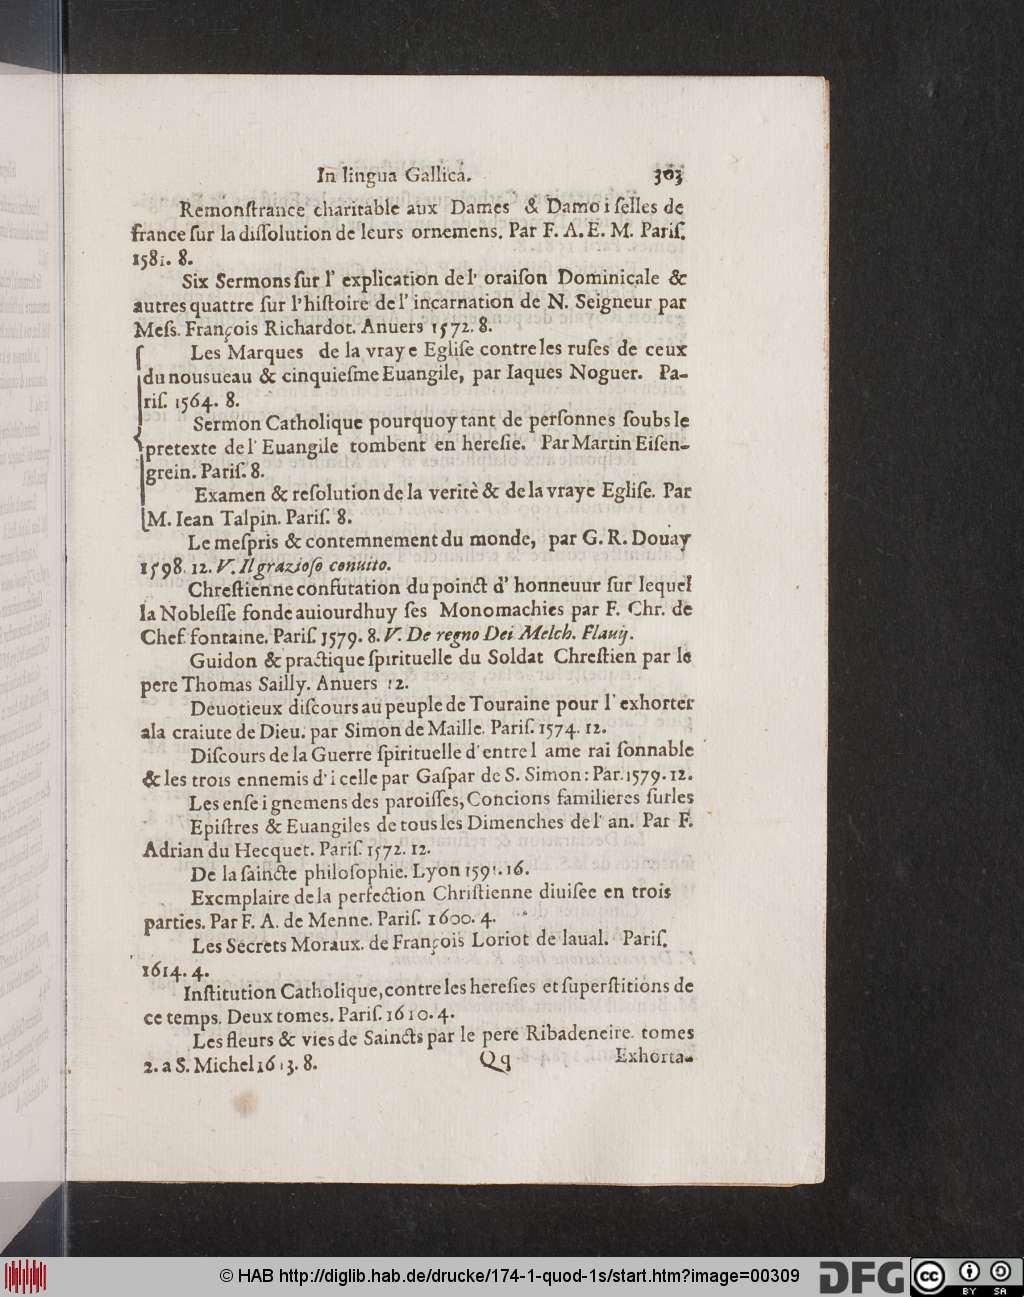 In lingua Gallica. 303
Remonſtrance charitable aux Dames & Damoi ſelles de
france ſur la diſſolution de leurs ornemens. Par F. A. E. M. Pariſ.
1581. 8.
Six Sermons ſur l' explication de l' oraiſon Dominicale &
autres quattre ſur l'hiſtoire de l' incarnation de N. Seigneur par
Meſs. François Richardot. Anuers 1572. 8.
Les Marques de la vray e Egliſe contre les ruſes de ceux
du nousueau & cinquieſme Euangile, par Iaques Noguer. Pa-
riſ. 1564. 8.
Sermon Catholique pourquoy tant de perſonnes ſoubs le
pretexte de l' Euangile tombent en hereſie. Par Martin Eiſen-
grein. Pariſ. 8.
Examen & reſolution de la veritè & de la vraye Egliſe. Par
M. Iean Talpin. Pariſ. 8.
Le meſpris & contemnement du monde, par G. R. Douay
1598. 12. V. Il grazioſo conuito.
Chreſtienne confutation du poinct d' honneuur ſur lequel
la Nobleſſe fonde auiourdhuy ſes Monomachies par F. Chr. de
Chef fontaine. Pariſ. 1579. 8. V. De regno Dei Melch. Flauij.
Guidon & practique ſpirituelle du Soldat Chreſtien par le
pere Thomas Sailly. Anuers 12.
Deuotieux diſcours au peuple de Touraine pour l' exhorter
ala craiute de Dieu. par Simon de Maille. Pariſ. 1574. 12.
Diſcours de la Guerre ſpirituelle d'entre l ame rai ſonnable
& les trois ennemis d'i celle par Gaſpar de S. Simon: Par. 1579. 12.
Les enſei gnemens des paroiſſes, Concions familieres ſurles
Epiſtres & Euangiles de tous les Dimenches de l' an. Par F.
Adrian du Hecquet. Pariſ. 1572. 12.
De la ſaincte philoſophie. Lyon 1591. 16.
Exemplaire de la perfection Chriſtienne diuiſee en trois
parties. Par F. A. de Menne. Pariſ. 1600. 4.
Les Secrets Moraux. de François Loriot de laual. Pariſ.
1614. 4.
Inſtitution Catholique, contre les hereſies et ſuperſtitions de
ce temps. Deux tomes. Pariſ. 1610. 4.
Les fleurs & vies de Saincts par le pere Ribadeneire. tomes
2. a S. Michel 1613. 8. Qq Exhorta-
© HAB http://diglib.hab.de/drucke/174-1-quod-1s/start.htm?image=00309
DFG
cc BY SA